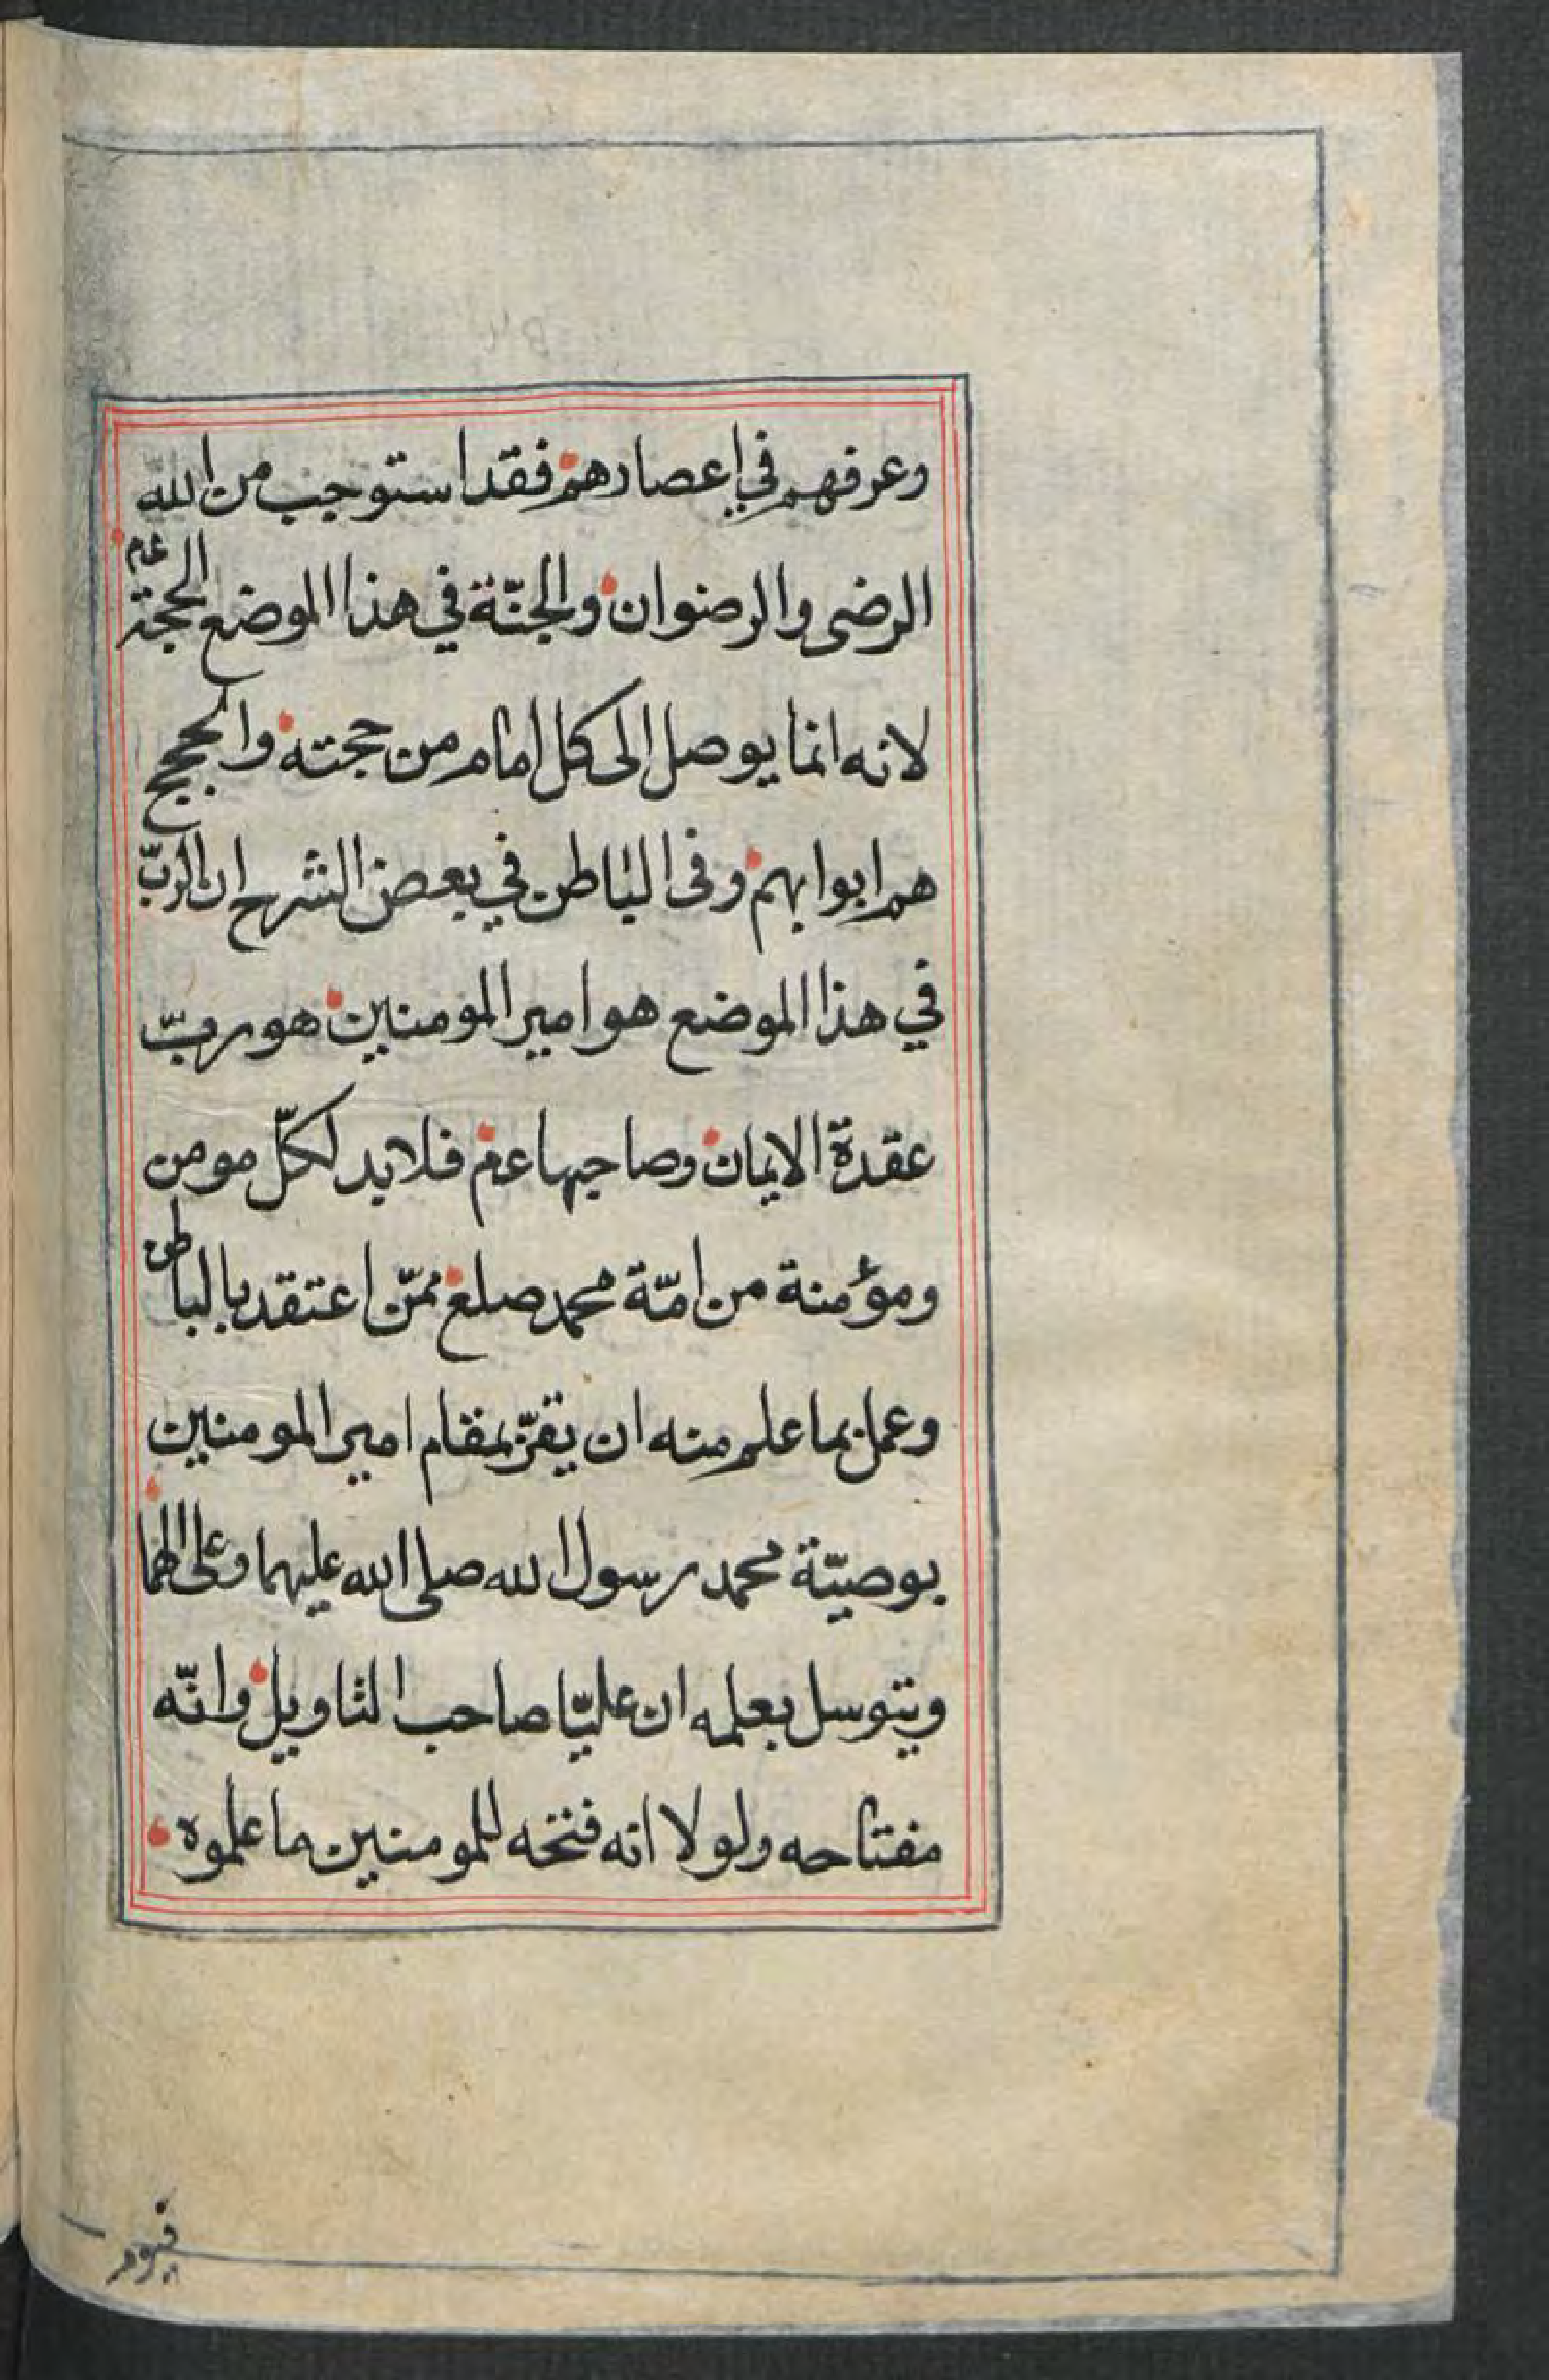 وعرفهم في اعصارهم فقد استوجب من الله
الرضى والرضوان والجنّة في هذا الموضع الحجة عم
لانه انما يوصل الى كل امام من حجته والحجج
هم ابوابهم وفى الباطن في بعض الشرح ان الربّ
في هذا الموضع هو امير المومنين هو ربّ
عقدة الايمان وصاحبها عم فلا بد لكلّ مومن
ومؤمنة من امّة محمد صلع ممّن اعتقد بالباطن
وعمل بما علم منه ان يقرّ بمقام امير المومنين
بوصيّة محمد رسول الله صلى الله عليهما وعلى الهما
ويتوسل بعلمه ان عليّا صاحب التاويل وانّه
مفتاحه ولولا انه فتحه للمومنين ما علموه